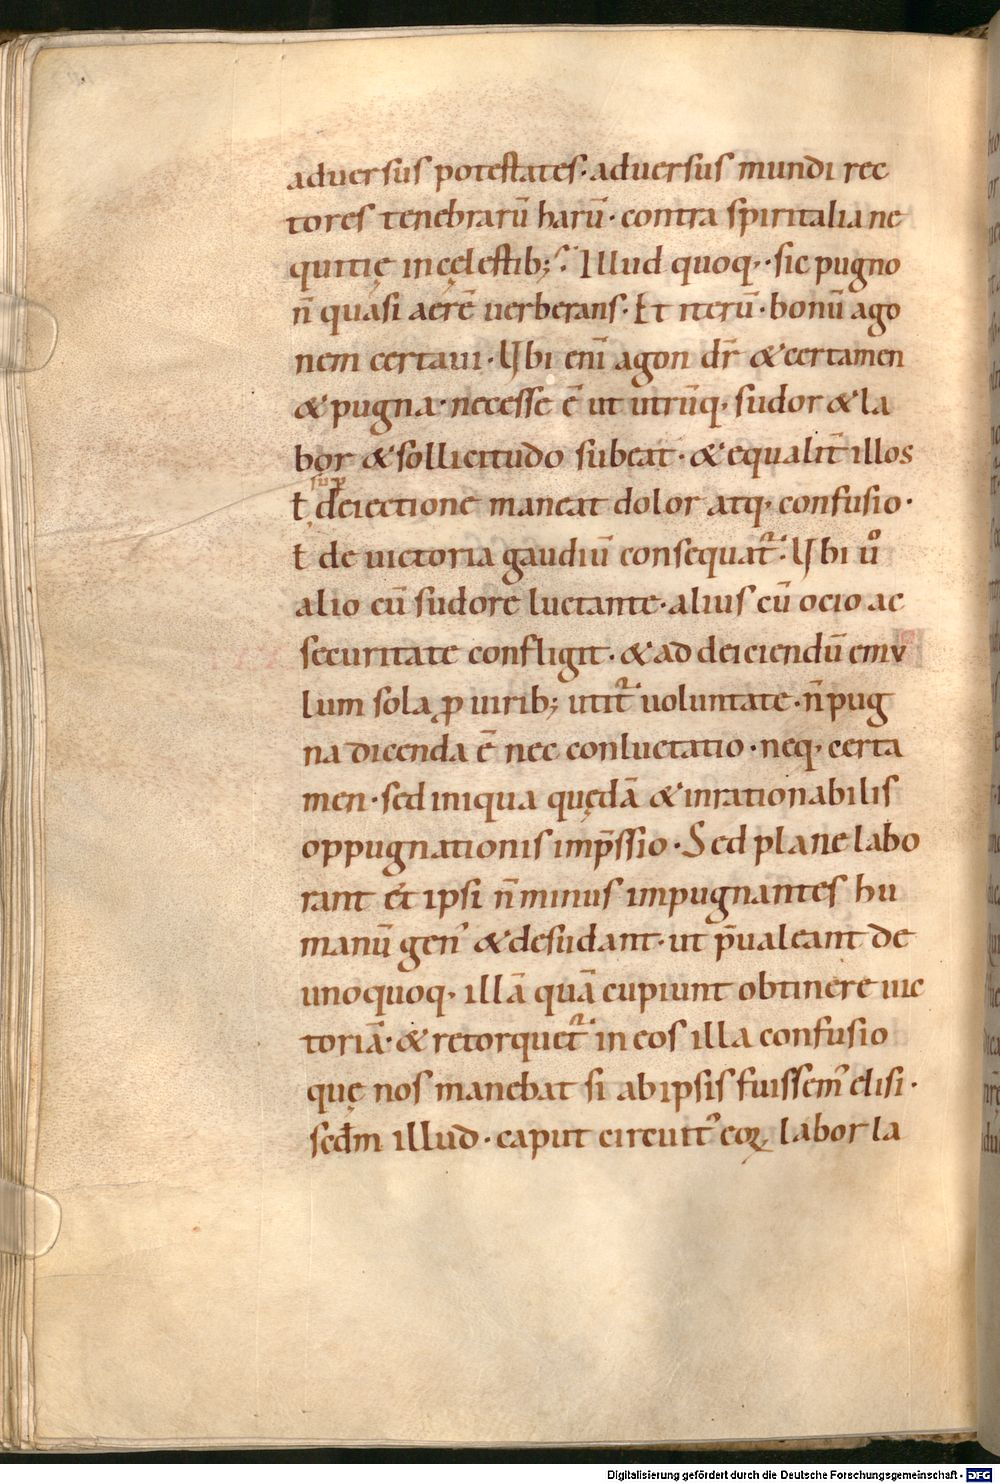 adversus potestates · adversus mundi rec
tores tenebrarū harū · contra spiritalia ne
quitię in cęlestib; : Illud quoq, · sic pugno
n̄ quasi aerē verberans · Et iterū · bonū ago
nem certaui · Ubi enī agon dr̄ & certamen
& pugna · necesse ē ut utrūq, sudor & la
bor & sollicitudo subeat · & equalit̄ illos
ł deiectione maneat dolor atq, confusio ·
ł de uictoria gaudiū consequat᷑ : Ubi ůo
alio cū sudore luctante · alius cū ocio ac
securitate confligit · & ad deiciendū emv
lum sola ꝓ uirib; utit᷑ uoluntate · n̄ pug
na dicenda ē nec conluctatio · neq, certa
men · sed iniqua quędā & inrationabilis
oppugnationis imp̄ssio · Sed plane labo
rant et ipsi n̄ minus impugnantes hu
manū gen᾿ & desudant · ut p̄ualeant de
unoquoq, illā quā cupiunt obtinere uic
toriā · & retorquet᷑ in eos illa confusio
quę nos manebat si ab ipsis fuissem᾿ elisi ·
sedm illud · caput circuit᾿ eoꝝ labor la
Digitalisierung gefördert durch die Deutsche Forschungsgemeinschaft - DFG